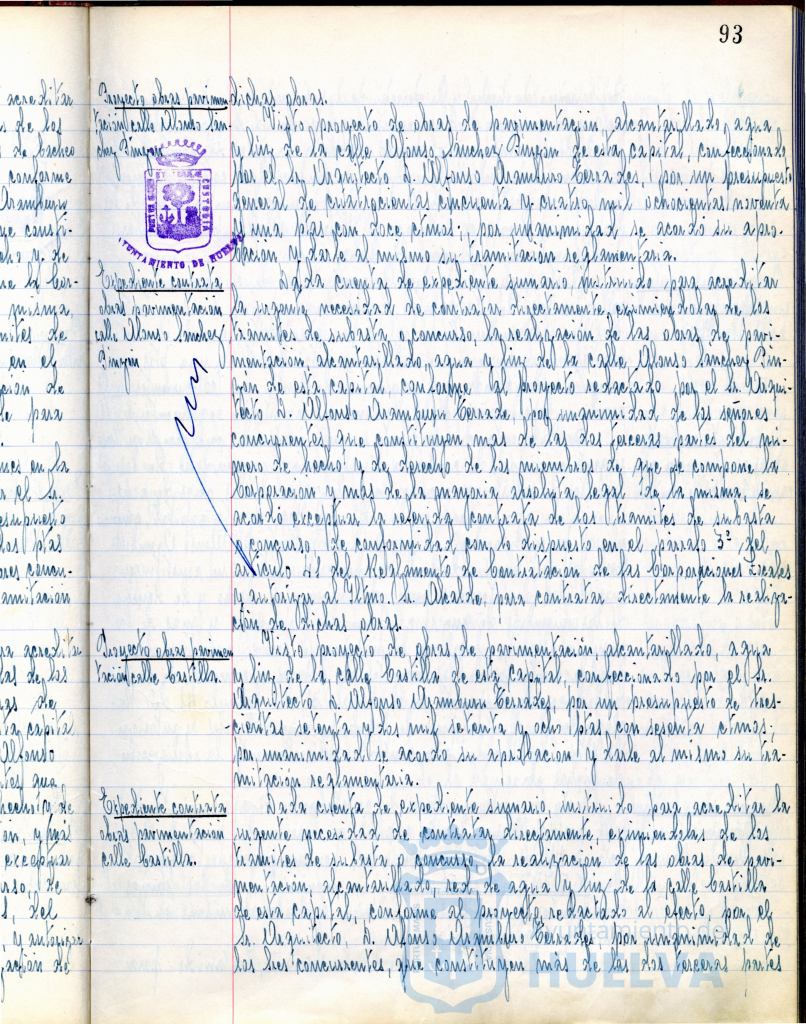 93
dichas obras.
Proyecto obras pavimen-
tación calle Alonso Sán-
chez Pinzón
Visto proyecto de obras de pavimentación, alcantarillado, agua
y luz de la calle Alfonso Sánchez Pinzón de esta capital, confeccionado
por el Sr. Arquitecto D. Alfonso Aramburu Terrades, por un presupuesto
general de cuatrocientas cincuenta y cuatro mil ochocientas noventa
y una ptas con doce ctmos; por unanimidad se acordó su apro-
bación y darle al mismo su tramitación reglamentaria.
CUSTODIA
AYUNTAMIENTO DE HUELVA
Expediente contrata
obras pavimentación
calle Alonso Sánchez
Pinzón
Dada cuenta de expediente sumario, instruido para acreditar
la urgente necesidad de contratar directamente, eximiendolas de los
trámites de subasta o concurso, la realización de las obras de pavi-
mentación, alcantarillado, agua y luz de la calle Alfonso Sánchez Pin-
zón de esta capital, conforme al proyecto redactado por el Sr. Arqui-
tecto D. Alfonso Aramburu Terrade, por unanimidad de los señores
concurrentes, que constituyen más de las dos terceras partes del nú-
mero de hecho y de derecho de los miembros de que se compone la
Corporación y más de la mayoría absoluta legal de la misma, se
acordó exceptuar la referida contrata de los trámites de subasta
o concurso, de conformidad con lo dispuesto en el párrafo 3º, del
artículo 41 del Reglamento de Contratación de las Corporaciones Locales
y autorizar al Iltmo. Sr. Alcalde, para contratar directamente la realiza-
ción de dichas obras.
Proyecto obras pavimen-
tación calle Castilla.
Visto proyecto de obras de pavimentación, alcantarillado, agua
y luz de la calle Castilla de esta capital, confeccionado por el Sr.
Arquitecto D. Alfonso Aramburu Terrades, por un presupuesto de tres-
cientas setenta y dos mil setenta y ocho ptas. con sesenta ctmos;
por unanimidad se acordó su aprobación y darle al mismo su tra-
mitación reglamentaria.
Expediente contrata
obras pavimentación
calle Castilla.
Dada cuenta de expediente sumario, instruido para acreditar la
urgente necesidad de contratar directamente, eximiendolas de los
trámites de subasta o concurso, la realización de las obras de pavi-
mentación, alcantarillado, red de agua y luz de la calle Castilla
de esta capital, conforme al proyecto redactado al efecto, por el
Sr. Arquitecto, D. Alfonso Aramburu Terrades por unanimidad de
los Sres concurrentes, que constituyen más de las dos terceras partes
ayuntamiento de
HUELVA